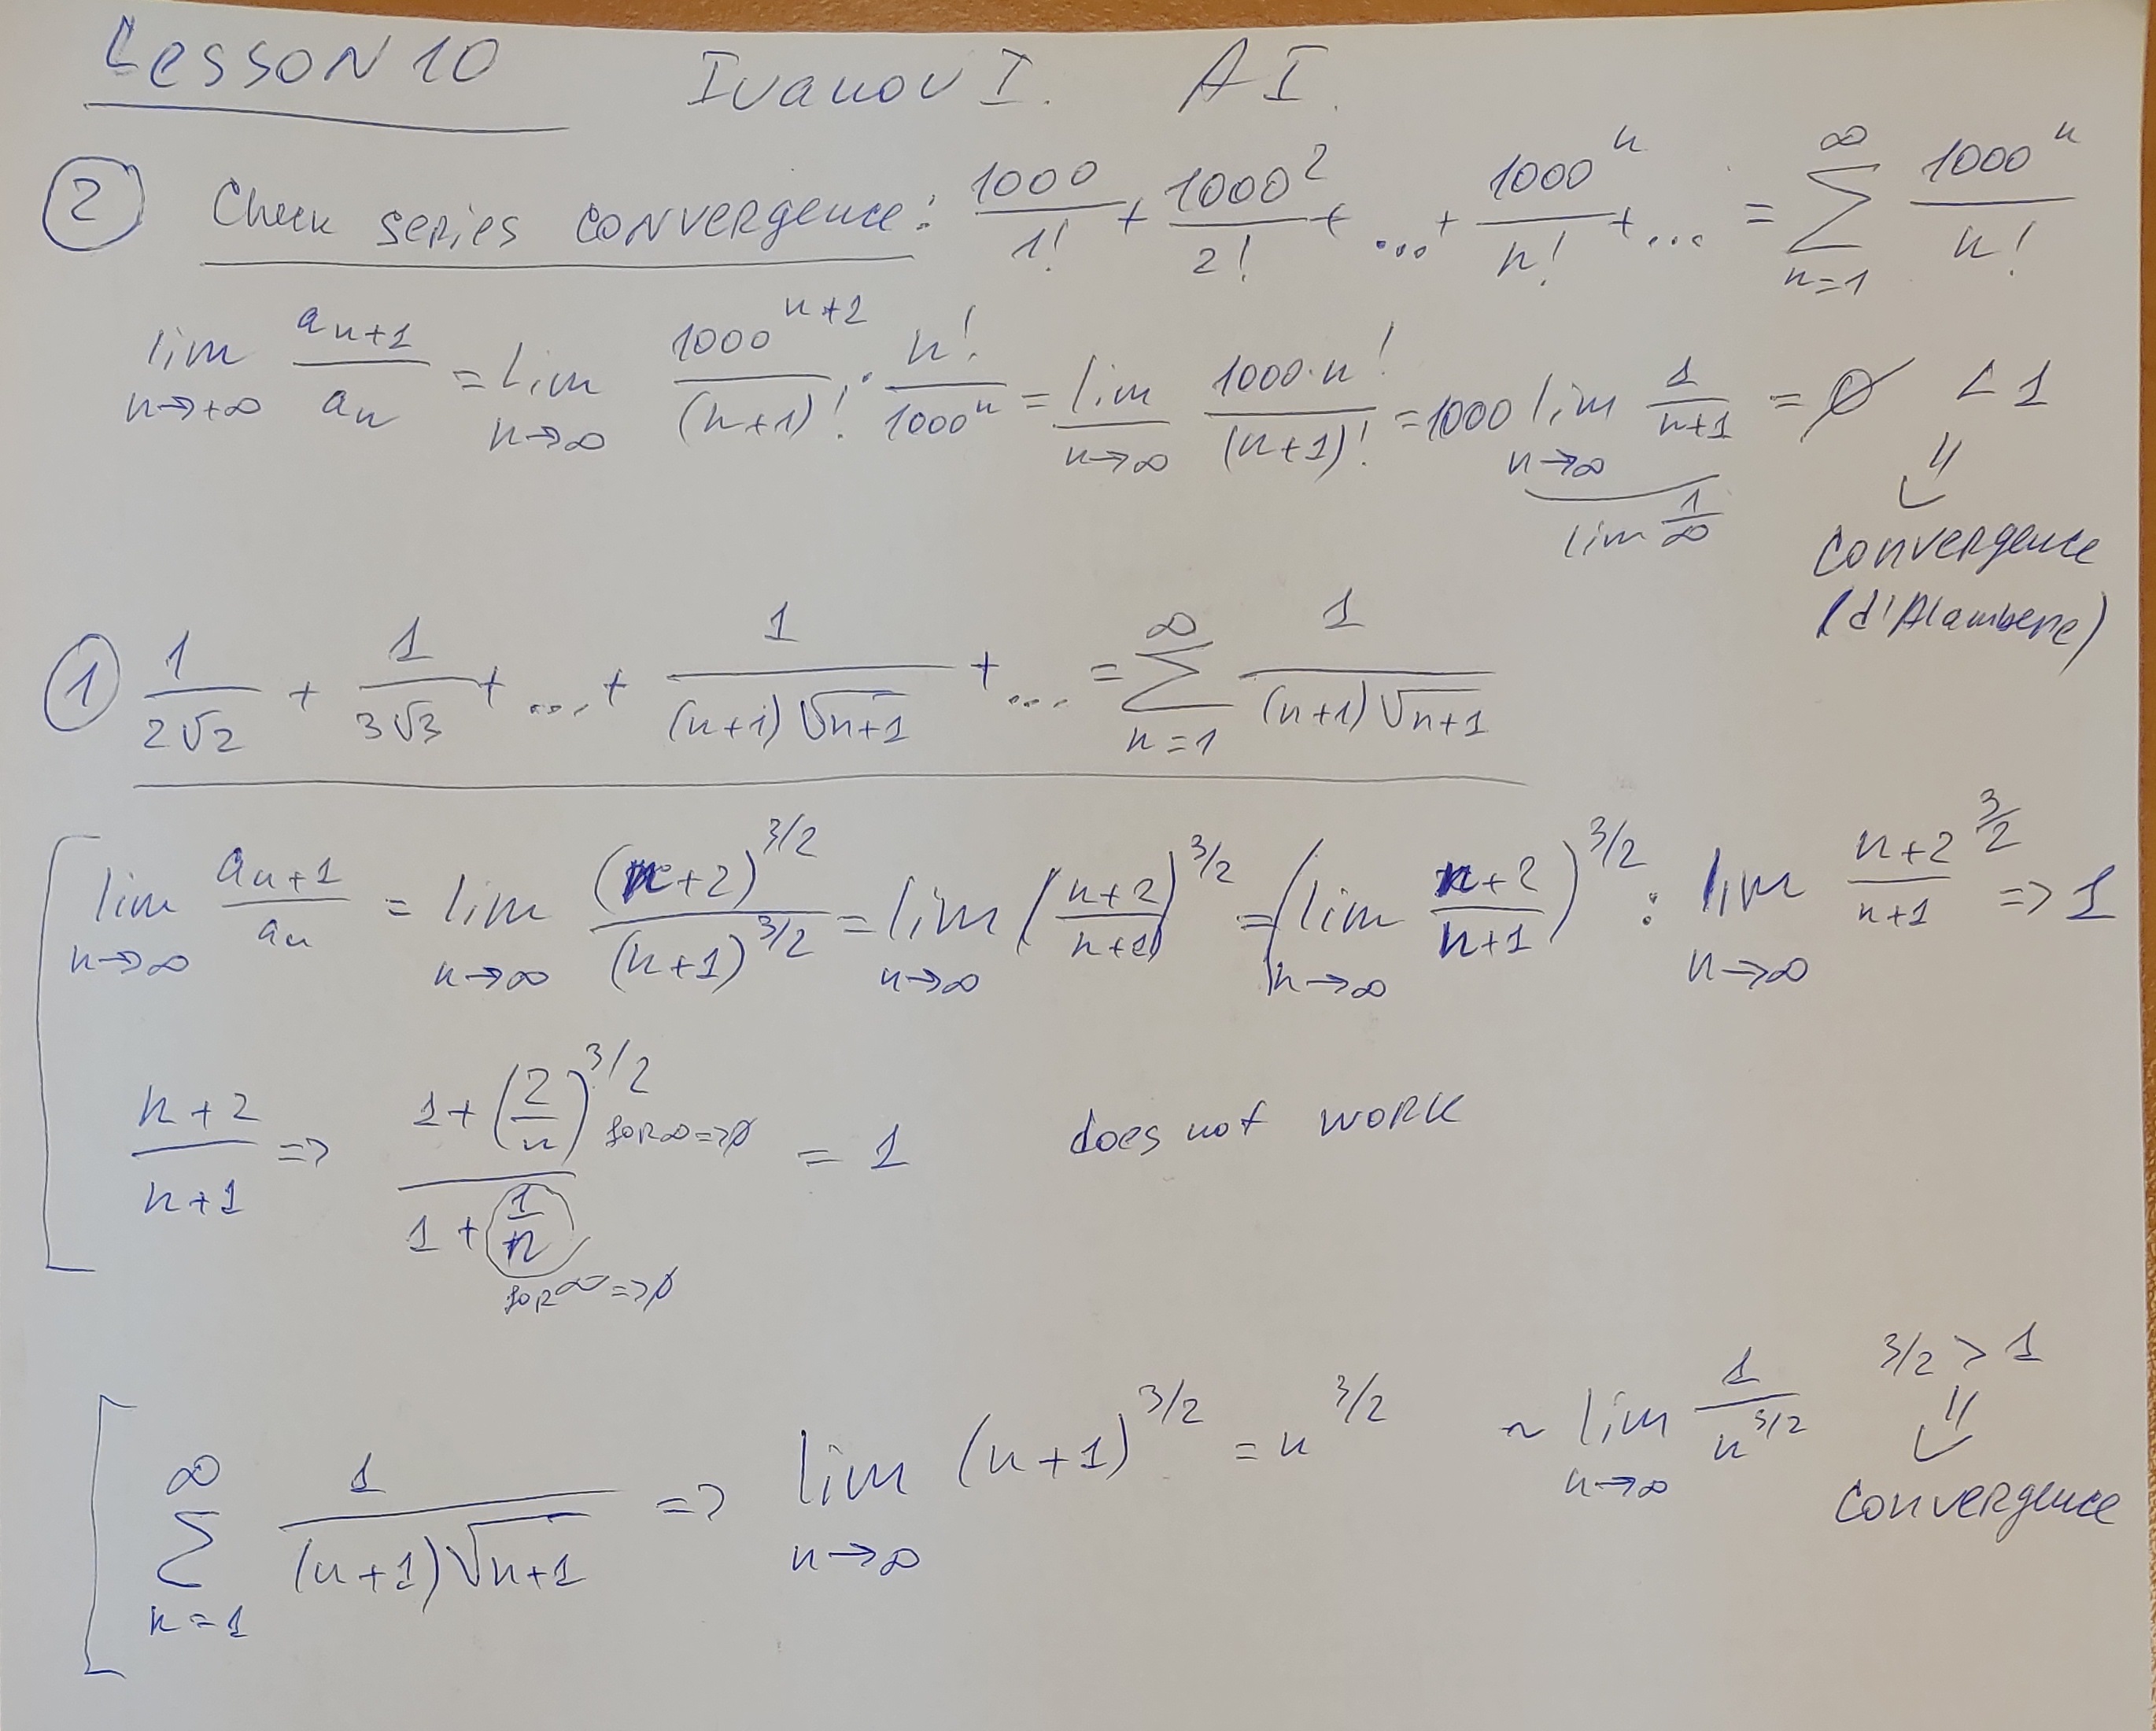 Lesson 10 Ivanov I. AI.
② Check series convergence: 1000/1! + 1000²/2! + ... + 1000ⁿ/n! + ... = ∑_{n=1}^{∞} 1000ⁿ/n!
lim_{n→+∞} a_{n+1}/a_n = lim_{n→∞} 1000^{n+2}/(n+1)! · n!/1000ⁿ = lim_{n→∞} 1000·n!/(n+1)! = 1000 lim_{n→∞} 1/(n+1) = 0 < 1
⇓
lim 1/∞
convergence
(d'Alambere)
① 1/(2√2) + 1/(3√3) + ... + 1/((n+1)√(n+1)) + ... = ∑_{n=1}^{∞} 1/((n+1)√(n+1))
lim_{n→∞} a_{n+1}/a_n = lim_{n→∞} (n+2)^{3/2}/(n+1)^{3/2} = lim_{n→∞} ((n+2)/(n+1))^{3/2} = (lim_{n→∞} (n+2)/(n+1))^{3/2} : lim_{n→∞} n+2^{3/2}/(n+1) => 1
(n+2)/(n+1) => (1+(2/n)^{3/2} for ∞ => 0)/(1+(1/n) for ∞ => 0) = 1 does not work
3/2 > 1
∑_{n=1}^{∞} 1/((n+1)√(n+1)) => lim_{n→∞} (n+1)^{3/2} = n^{3/2} ~ lim_{n→∞} 1/n^{3/2} ⇓
convergence